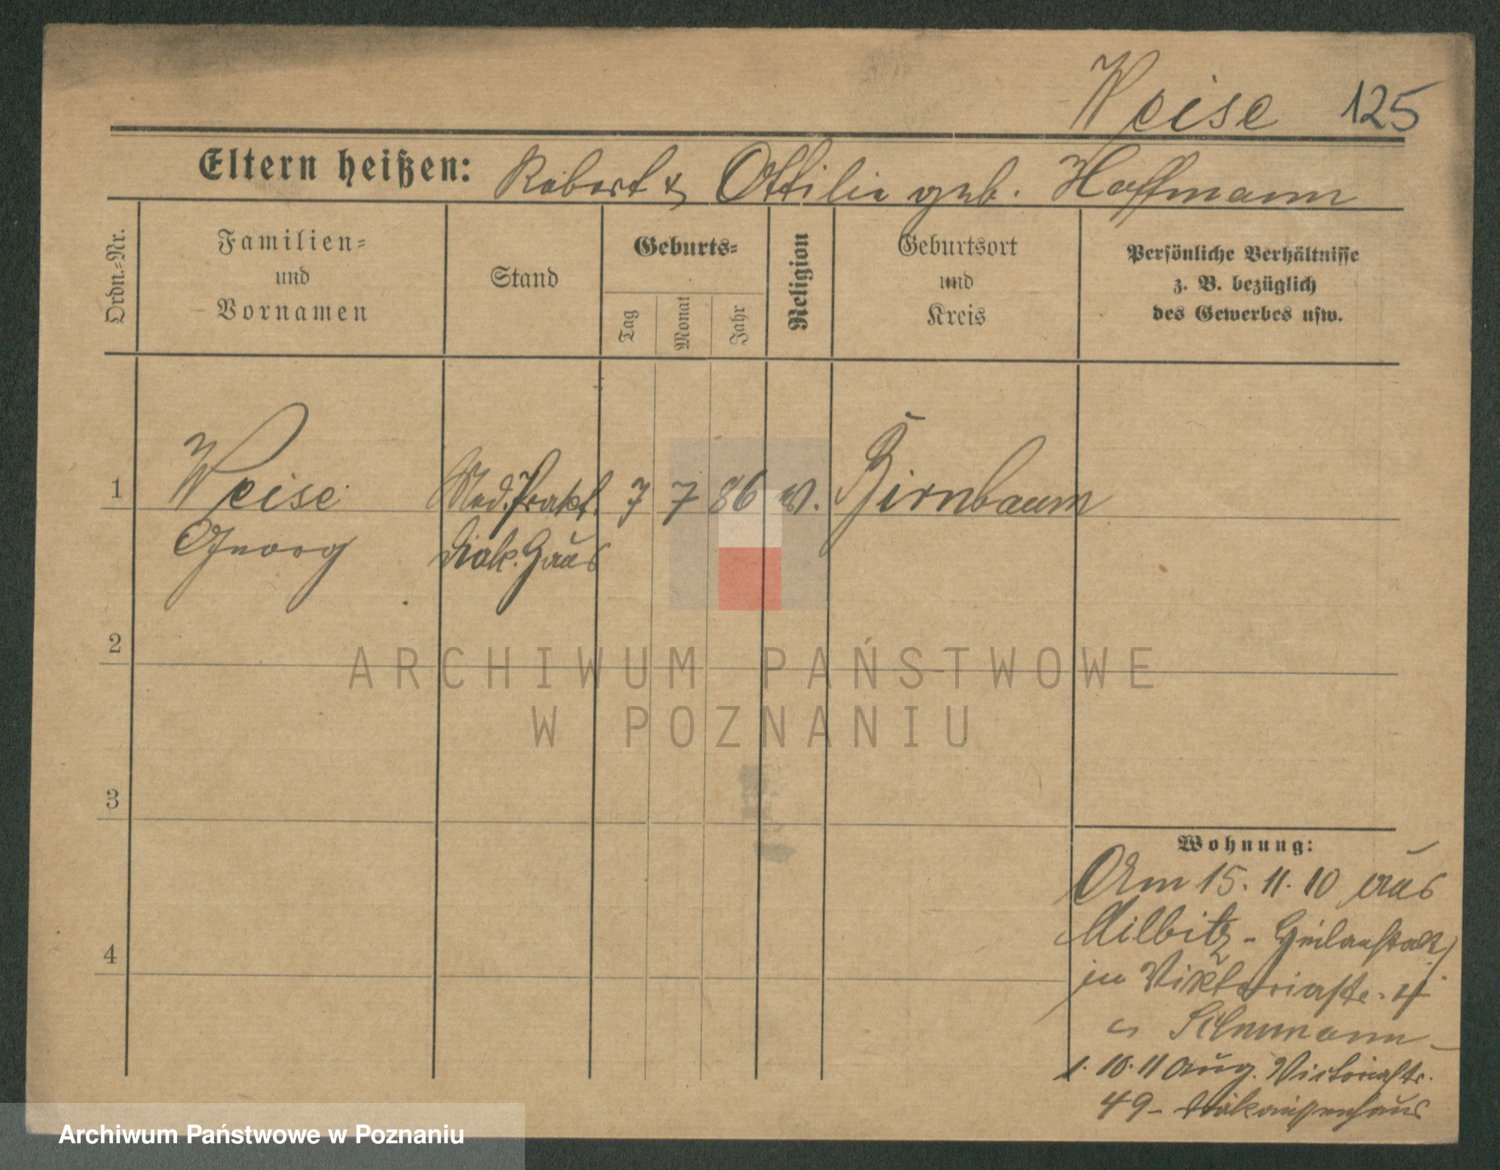 Weise 125
Eltern heißen: Robert & Ottilie geb. Hoffmann
Ordn.=Nr.
Familien=
und
Vornamen
Stand
Geburts=
Tag
Monat
Jahr
Religion
Geburtsort
und
Kreis
Persönliche Verhältnisse
z. B. bezüglich
des Gewerbes usw.
1 Weise Med. Prakt. 7 7 86 ev. Birnbaum
Georg Diak. Haus
2
ARCHIWUM PAŃSTWOWE
W POZNANIU
3
Wohnung:
Am 15. 11. 10 aus
Milbitz - Heilanstalt
in Viktoriastr. 4
1. 10. 11 Aug. Victoriastr.
49 - Diakonissenhaus
4
Archiwum Państwowe w Poznaniu